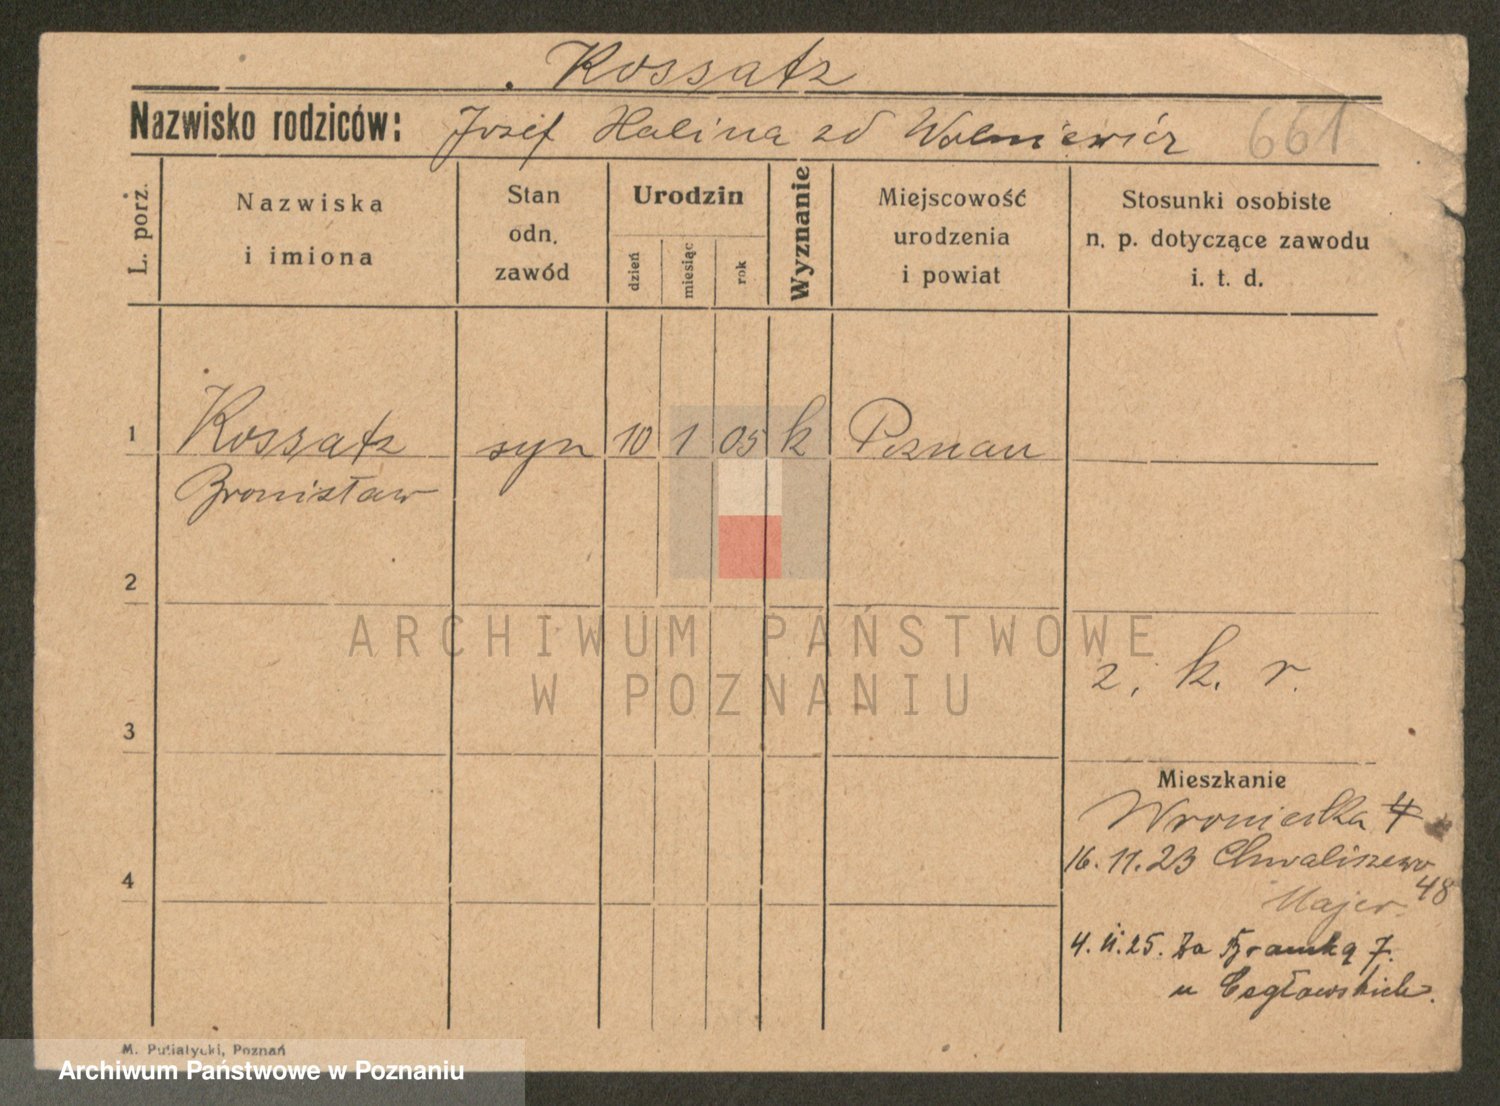 Kossatz
Nazwisko rodziców: Jozef Halina zd Wolniewicz 661
L. porz.
Nazwiska
i imiona
Stan
odn.
zawód
Urodzin
dzień
miesiąc
rok
Wyznanie
Miejscowość
urodzenia
i powiat
Stosunki osobiste
n. p. dotyczące zawodu
i. t. d.
1 Kossatz syn 10 1 05 k Poznan
Bronisław
2
ARCHIWUM PAŃSTWOWE
W POZNANIU
z. k. r.
3
Mieszkanie
Wroniecka 4
16. 11. 23 Chwaliszewo
48
Majer
4
4. II. 25. Za Bramką 7.
u Cegłowskich.
M. Putiatycki, Poznań
Archiwum Państwowe w Poznaniu